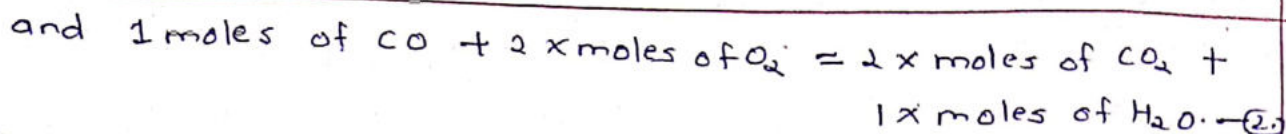 and 1 moles of CO + 2 x moles of O₂ = 2 x moles of CO₂ +
1 x moles of H₂O. —②.